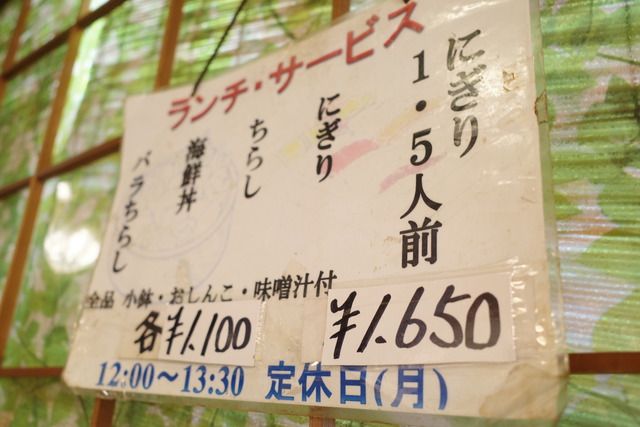 ランチ・サービス
にぎり
1・5人前
にぎり
ちらし
海鮮丼
バラちらし
全品 小鉢・おしんこ・味噌汁付
各¥1.100
¥1.650
12:00～13:30 定休日(月)